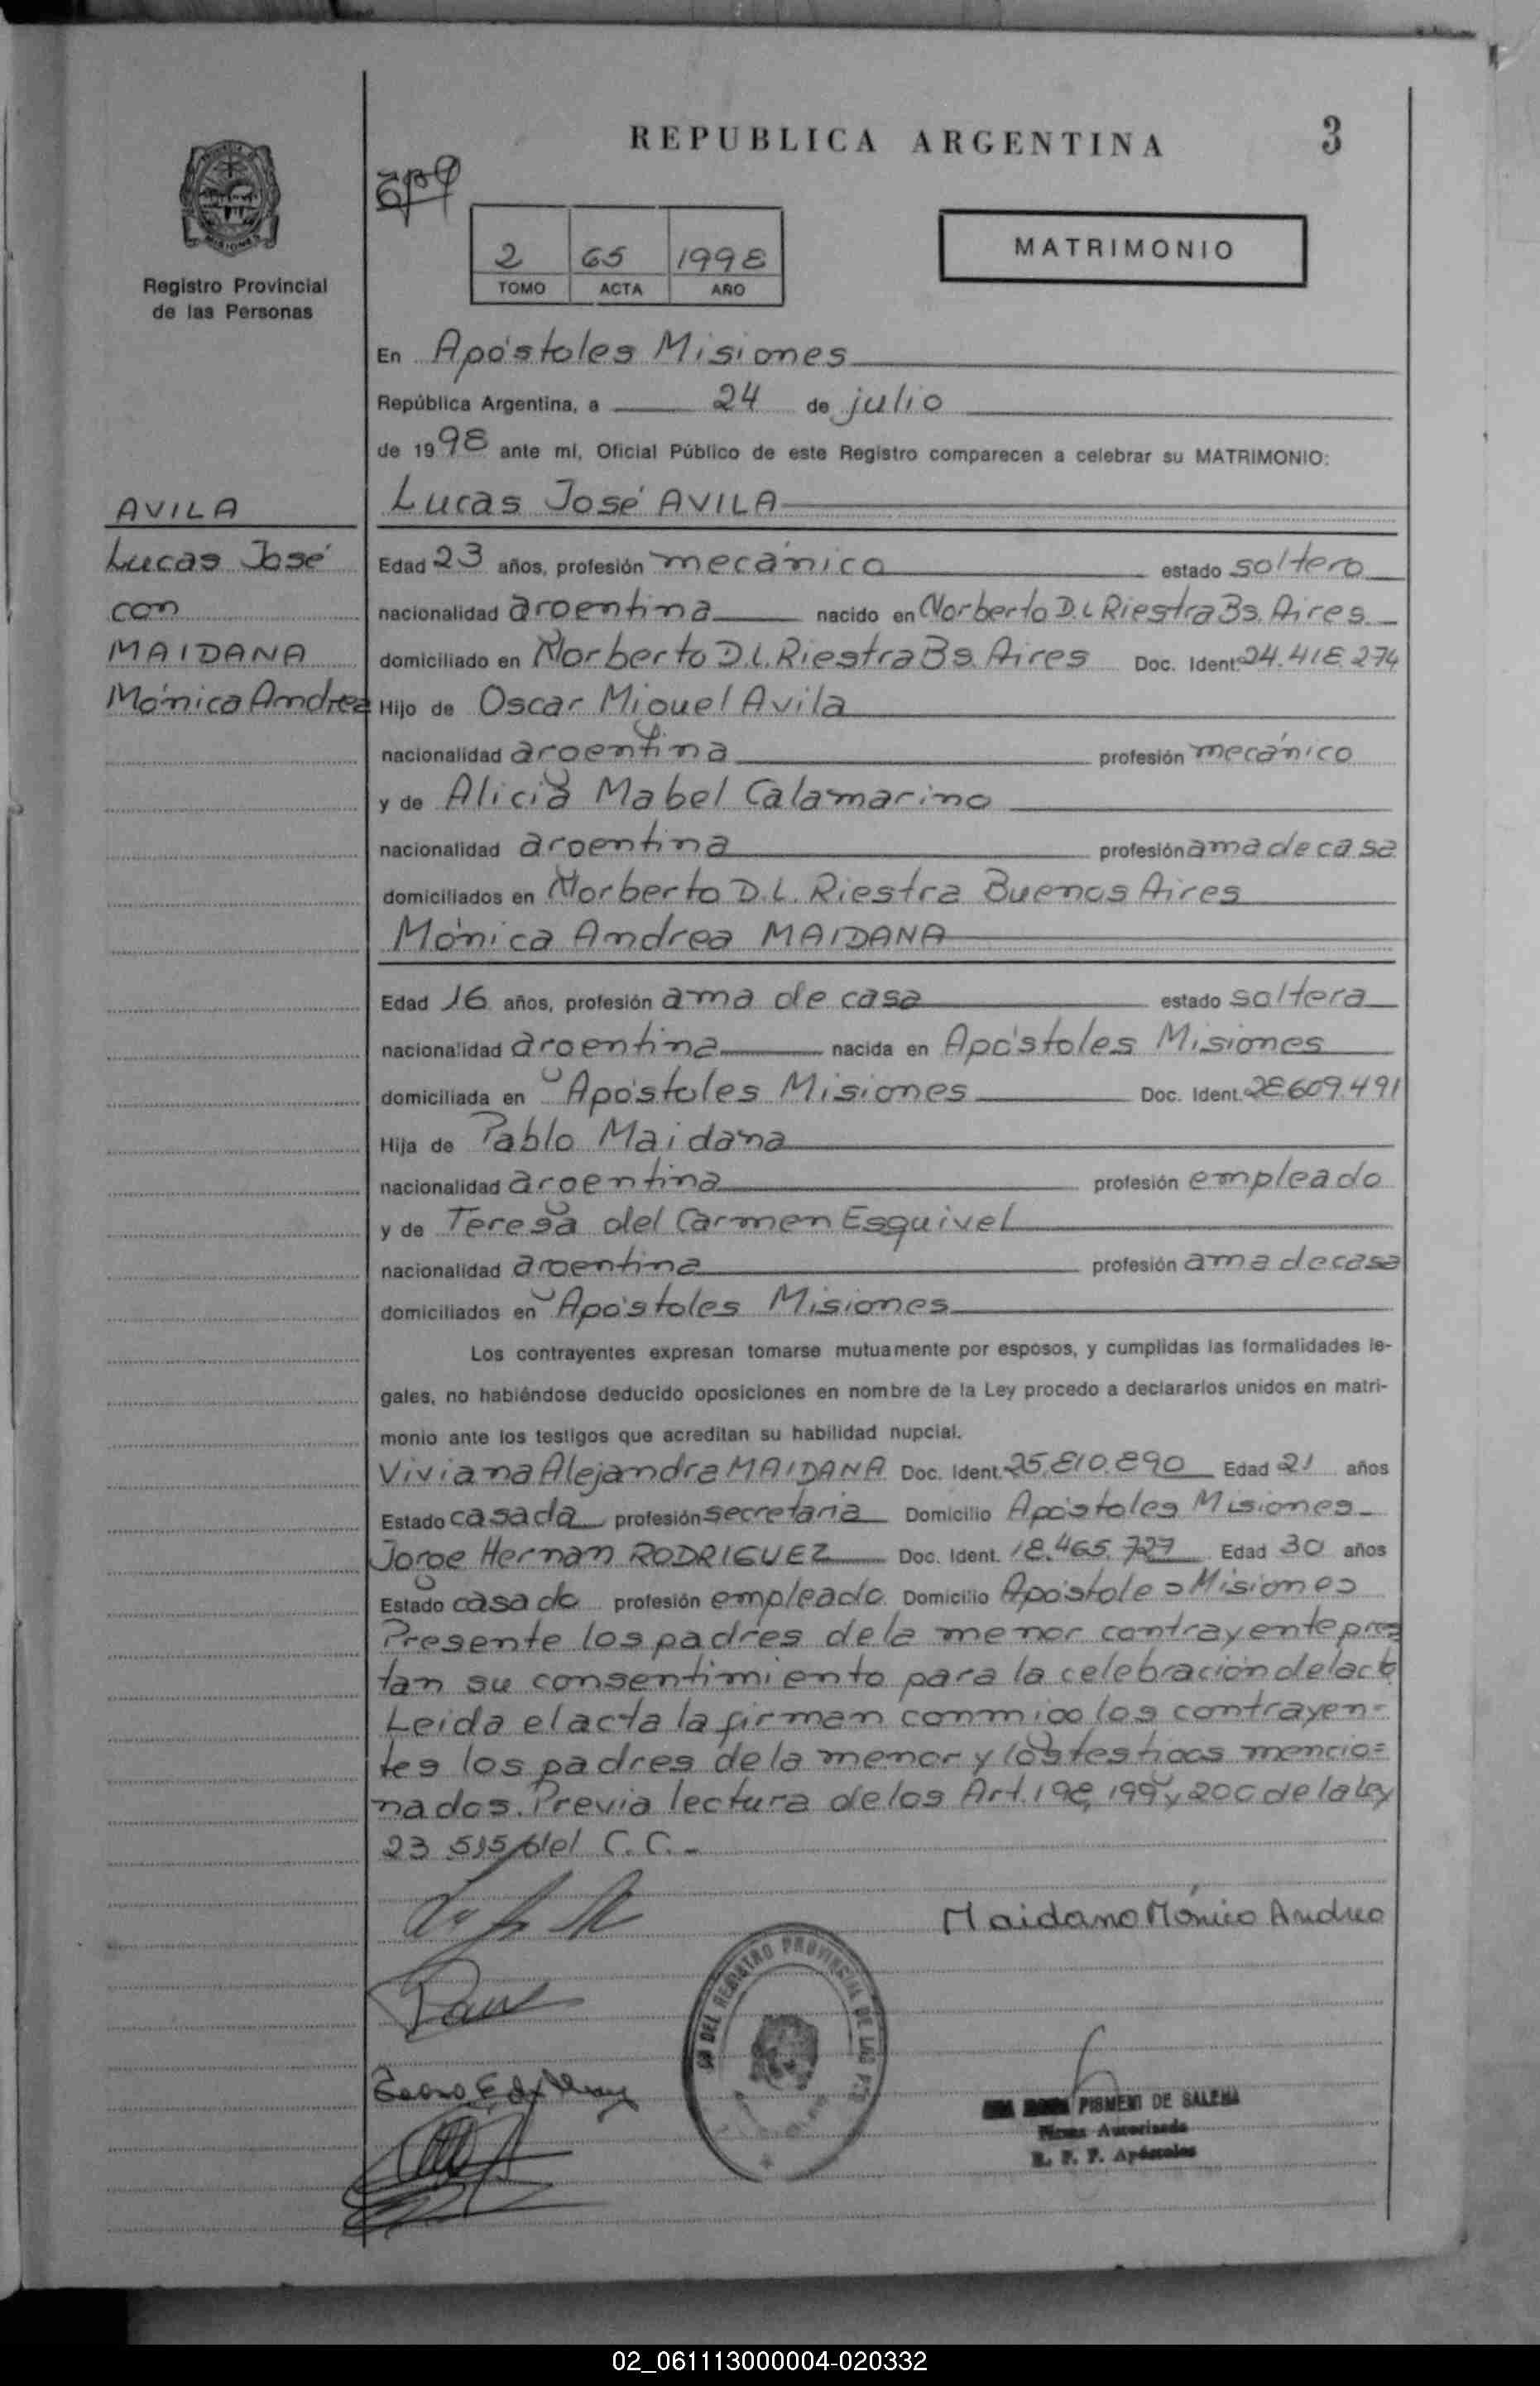 REPUBLICA ARGENTINA
3
MISIONES
Registro Provincial
de las Personas
2 65 1998
TOMO ACTA AÑO
MATRIMONIO
En Apóstoles Misiones
República Argentina, a 24 de julio
de 1998 ante mí, Oficial Público de este Registro comparecen a celebrar su MATRIMONIO:
AVILA
Lucas José
con
MAIDANA
Mónica Andrea
Lucas José AVILA
Edad 23 años, profesión mecánico estado soltero
nacionalidad argentina nacido en Norberto D.L Riestra Bs. Aires
domiciliado en Norberto D.L. Riestra Bs. Aires Doc. Ident. 24.418.274
Hijo de Oscar Miguel Avila
nacionalidad argentina profesión mecánico
y de Alicia Mabel Calamarino
nacionalidad argentina profesión ama de casa
domiciliados en Norberto D.L. Riestra Buenos Aires
Mónica Andrea MAIDANA
Edad 16 años, profesión ama de casa estado soltera
nacionalidad argentina nacida en Apóstoles Misiones
domiciliada en Apóstoles Misiones Doc. Ident. 28.609.491
Hija de Pablo Maidana
nacionalidad argentina profesión empleado
y de Teresa del Carmen Esquivel
nacionalidad argentina profesión ama de casa
domiciliados en Apóstoles Misiones
Los contrayentes expresan tomarse mutuamente por esposos, y cumplidas las formalidades le-
gales, no habiéndose deducido oposiciones en nombre de la Ley procedo a declararlos unidos en matri-
monio ante los testigos que acreditan su habilidad nupcial.
Viviana Alejandra MAIDANA Doc. Ident. 25.810.890 Edad 21 años
Estado casada profesión secretaria Domicilio Apóstoles Misiones
Jorge Hernan RODRIGUEZ Doc. Ident. 18.465.727 Edad 30 años
Estado casado profesión empleado Domicilio Apóstoles Misiones
Presente los padres de la menor contrayente pres
tan su consentimiento para la celebración del acto
Leida el acta la firman conmigo los contrayen-
tes los padres de la menor y los testigos mencio=
nados. Previa lectura de los Art. 198, 199 y 200 de la ley
23 515 del C.C.-
Maidana Mónica Andrea
DEL REGISTRO PROVINCIAL DE LAS
PISMENI DE SALEMA
Firma Autorizada
R. P. P. Apóstoles
02_061113000004-020332